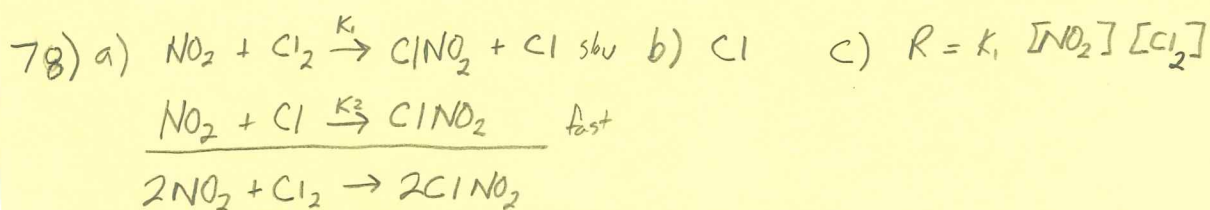 78) a) NO₂ + Cl₂ →K₁ ClNO₂ + Cl slow b) Cl c) R = K₁ [NO₂] [Cl₂]
NO₂ + Cl →K₂ ClNO₂ fast
2NO₂ + Cl₂ → 2ClNO₂